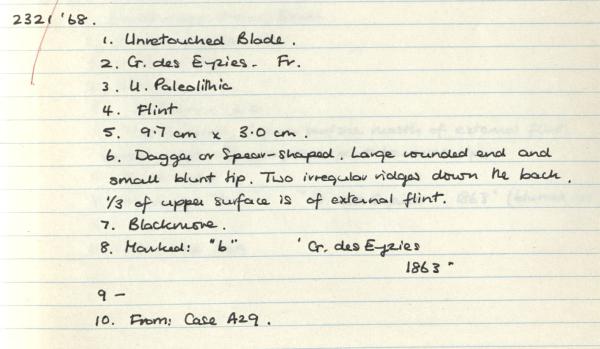 2321 '68.
1. Unretouched Blade.
2. Gr. des Eyzies - Fr.
3. U. Paleolithic
4. Flint
5. 9.7 cm x 3.0 cm.
6. Dagger or Spear-shaped. Large rounded end and
small blunt tip. Two irregular ridges down the back.
1/3 of upper surface is of external flint.
7. Blackmore.
8. Marked: "b" 'Gr. des Eyzies
1863"
9 -
10. From: Case A29.